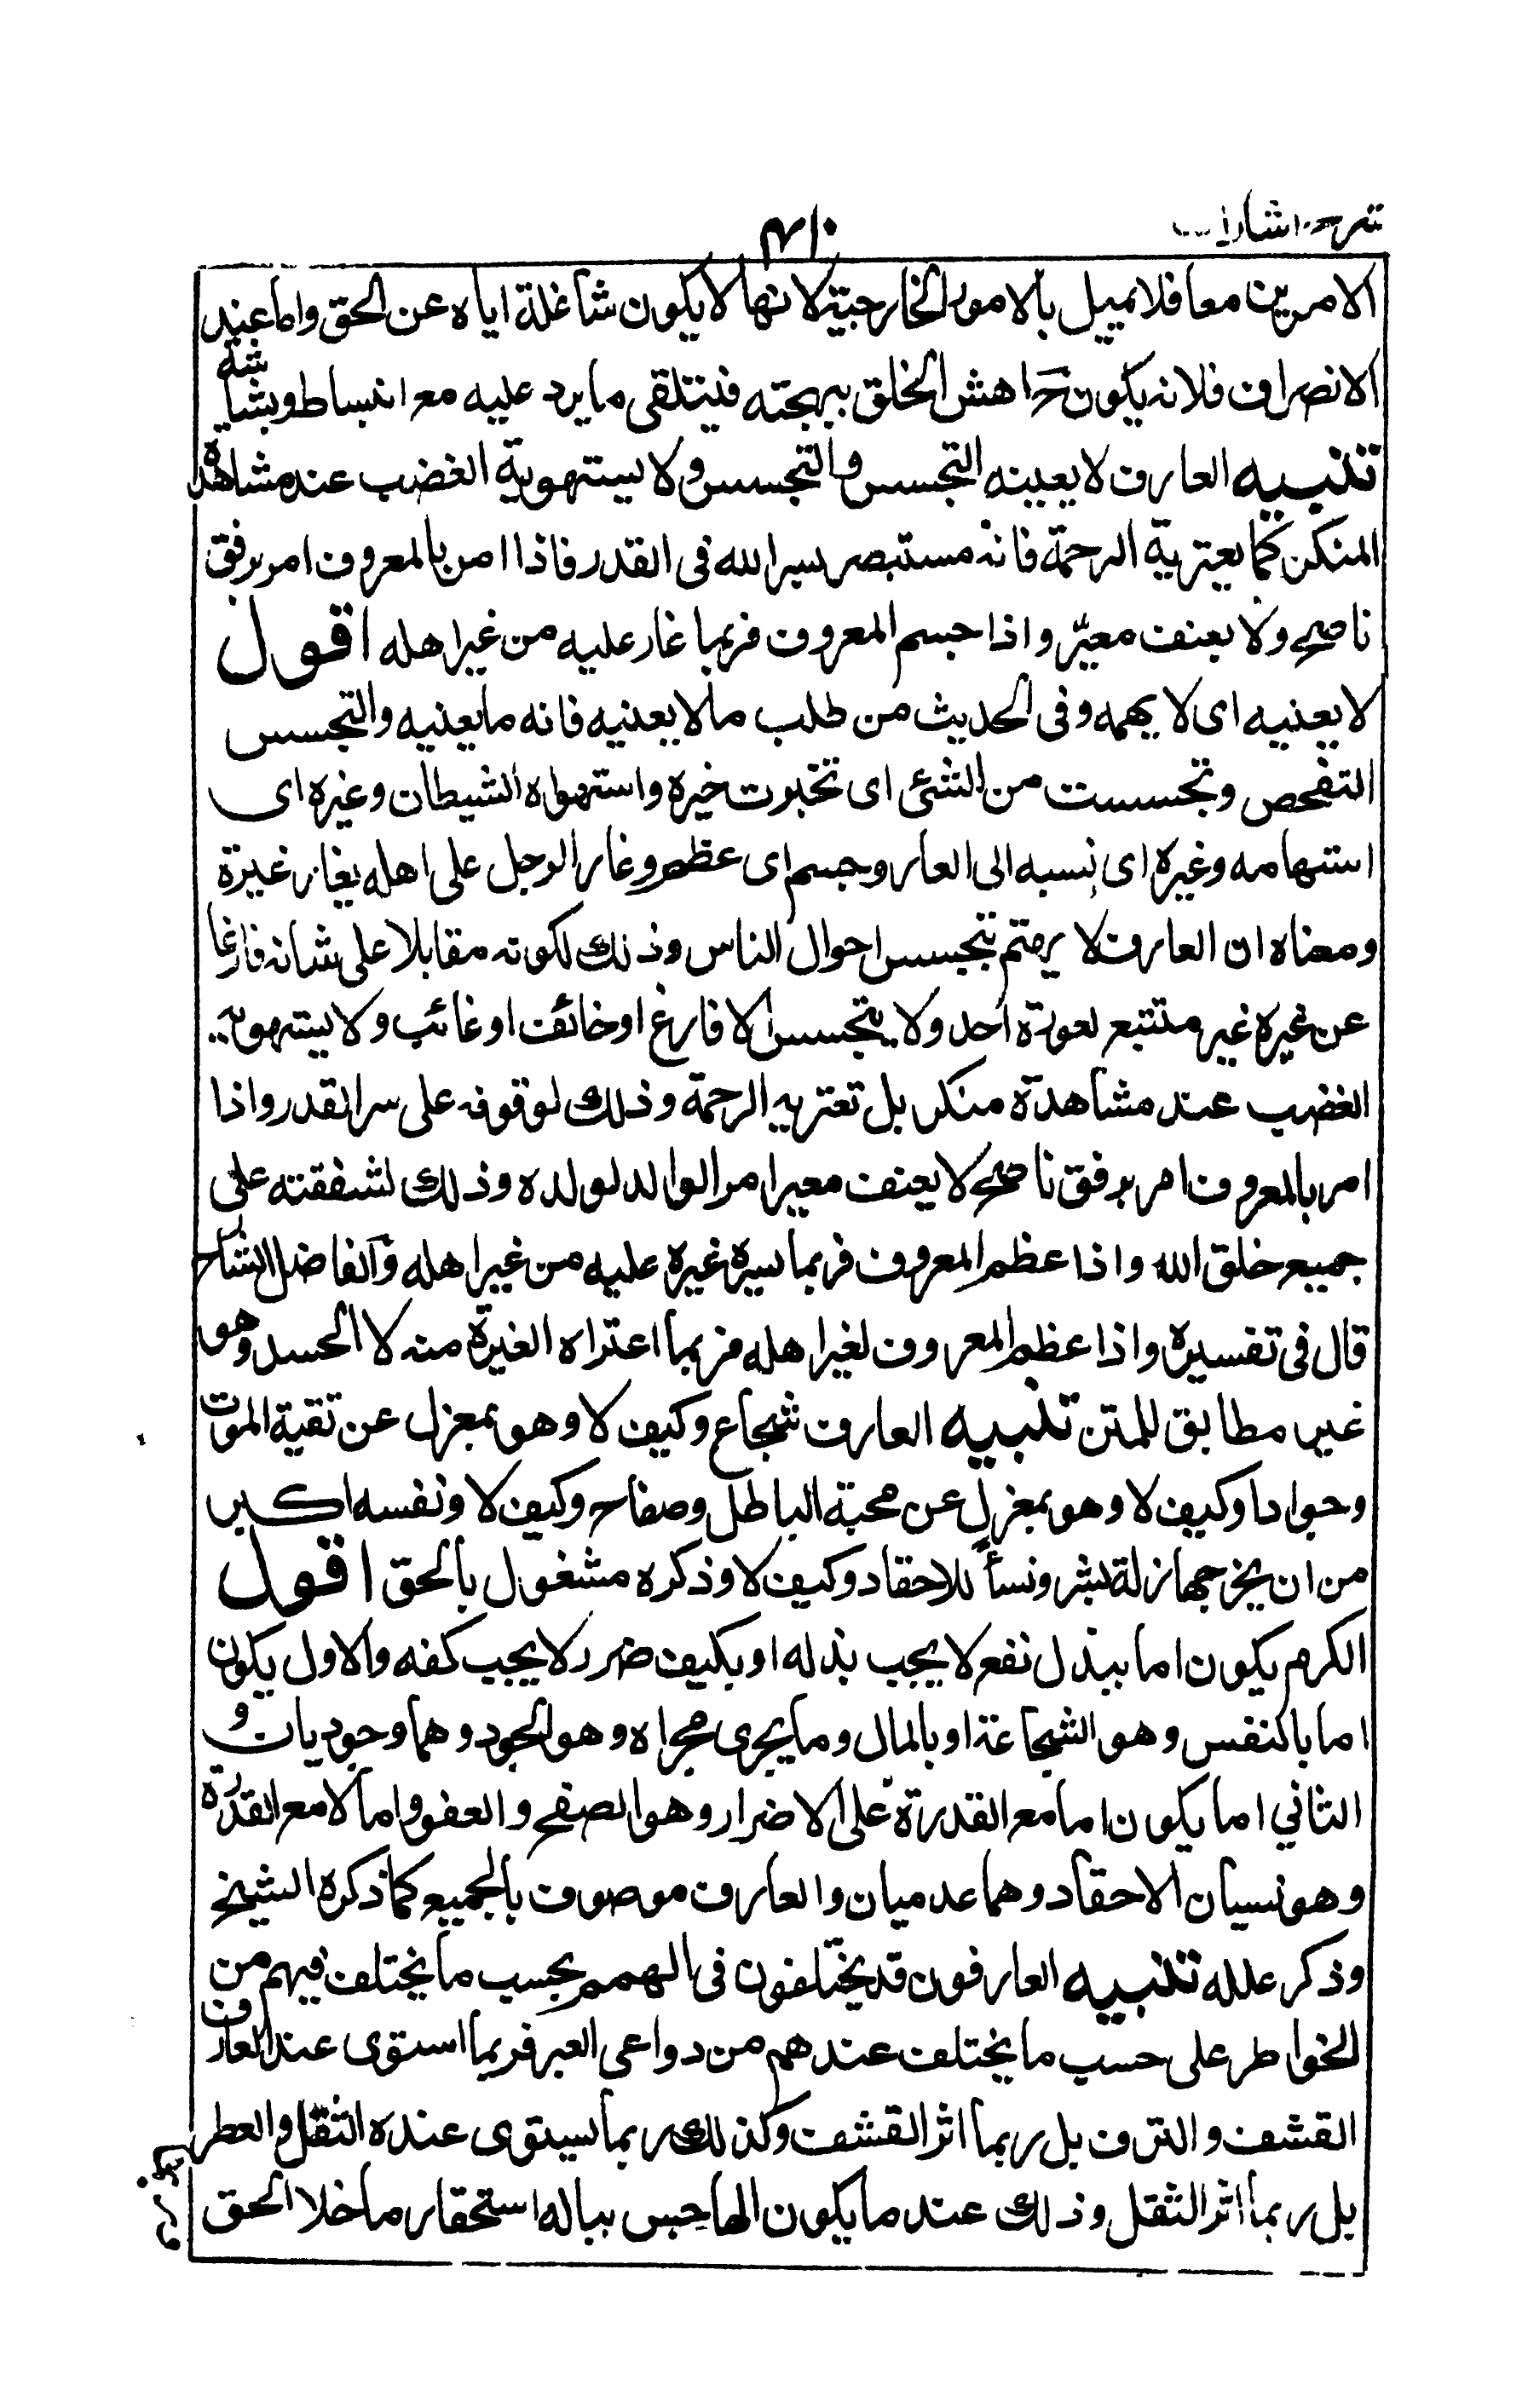 شرح اشارات
٤١٠
الامرين معا فلا يميل بالامور الخارجية لانها لا يكون شاغلة اياه عن الحق واما عند
الانصراف فلانه يكون ح اهش الخلق ببهجته فيتلقى ما يرد عليه مع انبساط وبشاشة
تنبيه العارف لا يعينه التجسس والتجسس ولا يستهويه الغضب عند مشاهدة
المنكر كما يعتريه الرحمة فانه مستبصر بسر الله فى القدر فاذا امر بالمعروف امر برفق
ناصح ولا بعنف معيّر واذا جسم المعروف فربما غار عليه من غير اهله اقول
لا يعنيه اى لا يهمه وفى الحديث من طلب ما لا يعنيه فانه ما يعنيه والتجسس
التفحص وتحسست من الشئ اى تخبرت خيره واستهواه الشيطان وغيره اى
استهامه وغيره اى نسبه الى العار وجسم اى عظم وغار الرجل على اهله يغار غيرة
ومعناه ان العارف لا يهتم بتجسس احوال الناس وذلك لكونه مقابلا على شانه فارغا
عن غيره غير متتبع لعورة احد ولا يتجسس الا فارغ او خائف او غائب ولا يستهويه
الغضب عند مشاهدة منكر بل تعتريه الرحمة وذلك لوقوفه على سر القدر واذا
امر بالمعروف امر برفق ناصح لا يعنف معيرا امر الوالد لولده وذلك لشفقته على
جميع خلق الله واذا عظم المعروف فربما سيره غيره عليه من غير اهله والفاضل الشارح
قال فى تفسيره واذا عظم المعروف لغير اهله فربما اعتراه الغيرة منه لا الحسد وهو
غير مطابق للمتن تنبيه العارف شجاع وكيف لا وهو بمعزل عن تقية الموت
وجوادا وكيف لا وهو بمعزل عن محبة الباطل وصفاح وكيف لا ونفسه اكبر
من ان يخرجها زلة بشر ونسأ للاحقاد وكيف لا وذكره مشغول بالحق اقول
الكرم يكون اما ببذل نفع لا يجب بذله او بكيف ضرر لا يجب كفه والاول يكون
اما بالنفس وهو الشجاعة او بالمال وما يجرى مجراه وهو الجود وهما وجوديان و
الثاني اما يكون اما مع القدرة على الاضرار وهو الصفح والعفو واما لا مع القدرة
وهو نسيان الاحقاد وهما عدميان والعارف موصوف بالجميع كما ذكره الشيخ
وذكر علله تنبيه العارفون قد يختلفون فى الهمم بحسب ما يختلف فيهم من
الخواطر على حسب ما يختلف عندهم من دواعى العبر فربما استوى عند العارف
القشف والترف بل ربما اثر القشف وكذلك ربما يستوى عنده الثقل والعطر
بل ربما اثر الثقل وذلك عند ما يكون الهاجس بباله استحقار ما خلا الحق